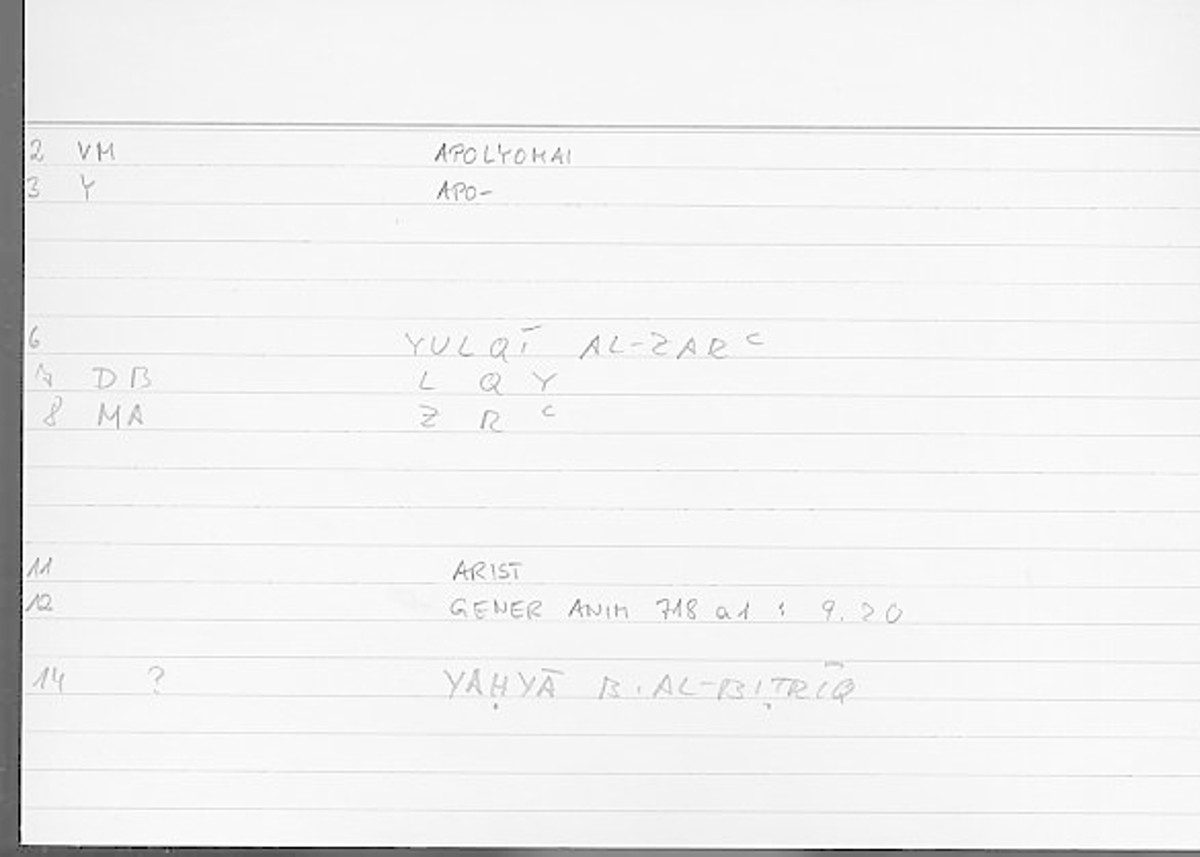 2 VM APOLYOMAI
3 Y APO-
6 YULQĪ AL-ZARᶜ
7 DB L Q Y
8 MA Z R ᶜ
11 ARIST
12 GENER ANIM 718 a1 : 9.20
14 ? YAḤYĀ B. AL-BIṬRĪQ